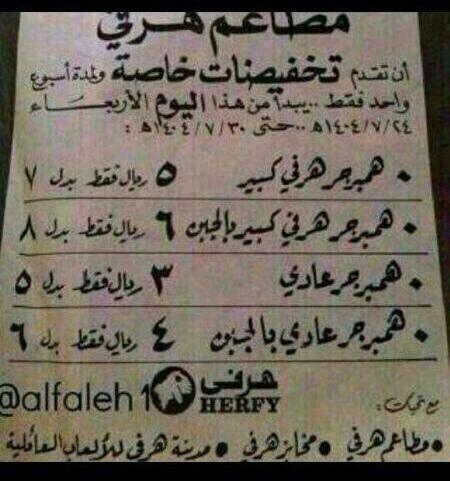 مطاعم هرفي
أن تقدم تخفيضات خاصة ولمدة أسبوع
واحد فقط .. يبدأ من هذا اليوم الأربعاء
١٤٠٤/٧/٢٤هـ .. حتى ١٤٠٤/٧/٣٠هـ :
• همبرجر هرفي كبير ٥ ريال فقط بدل ٧
• همبرجر هرفي كبير بالجبن ٦ ريال فقط بدل ٨
• همبرجر عادي ٣ ريال فقط بدل ٥
• همبرجر عادي بالجبن ٤ ريال فقط بدل ٦
هرفي
مع تحيات: HERFY @alfaleh1
• مطاعم هرفي • مخابز هرفي • مدينة هرفي للألعاب العائلية